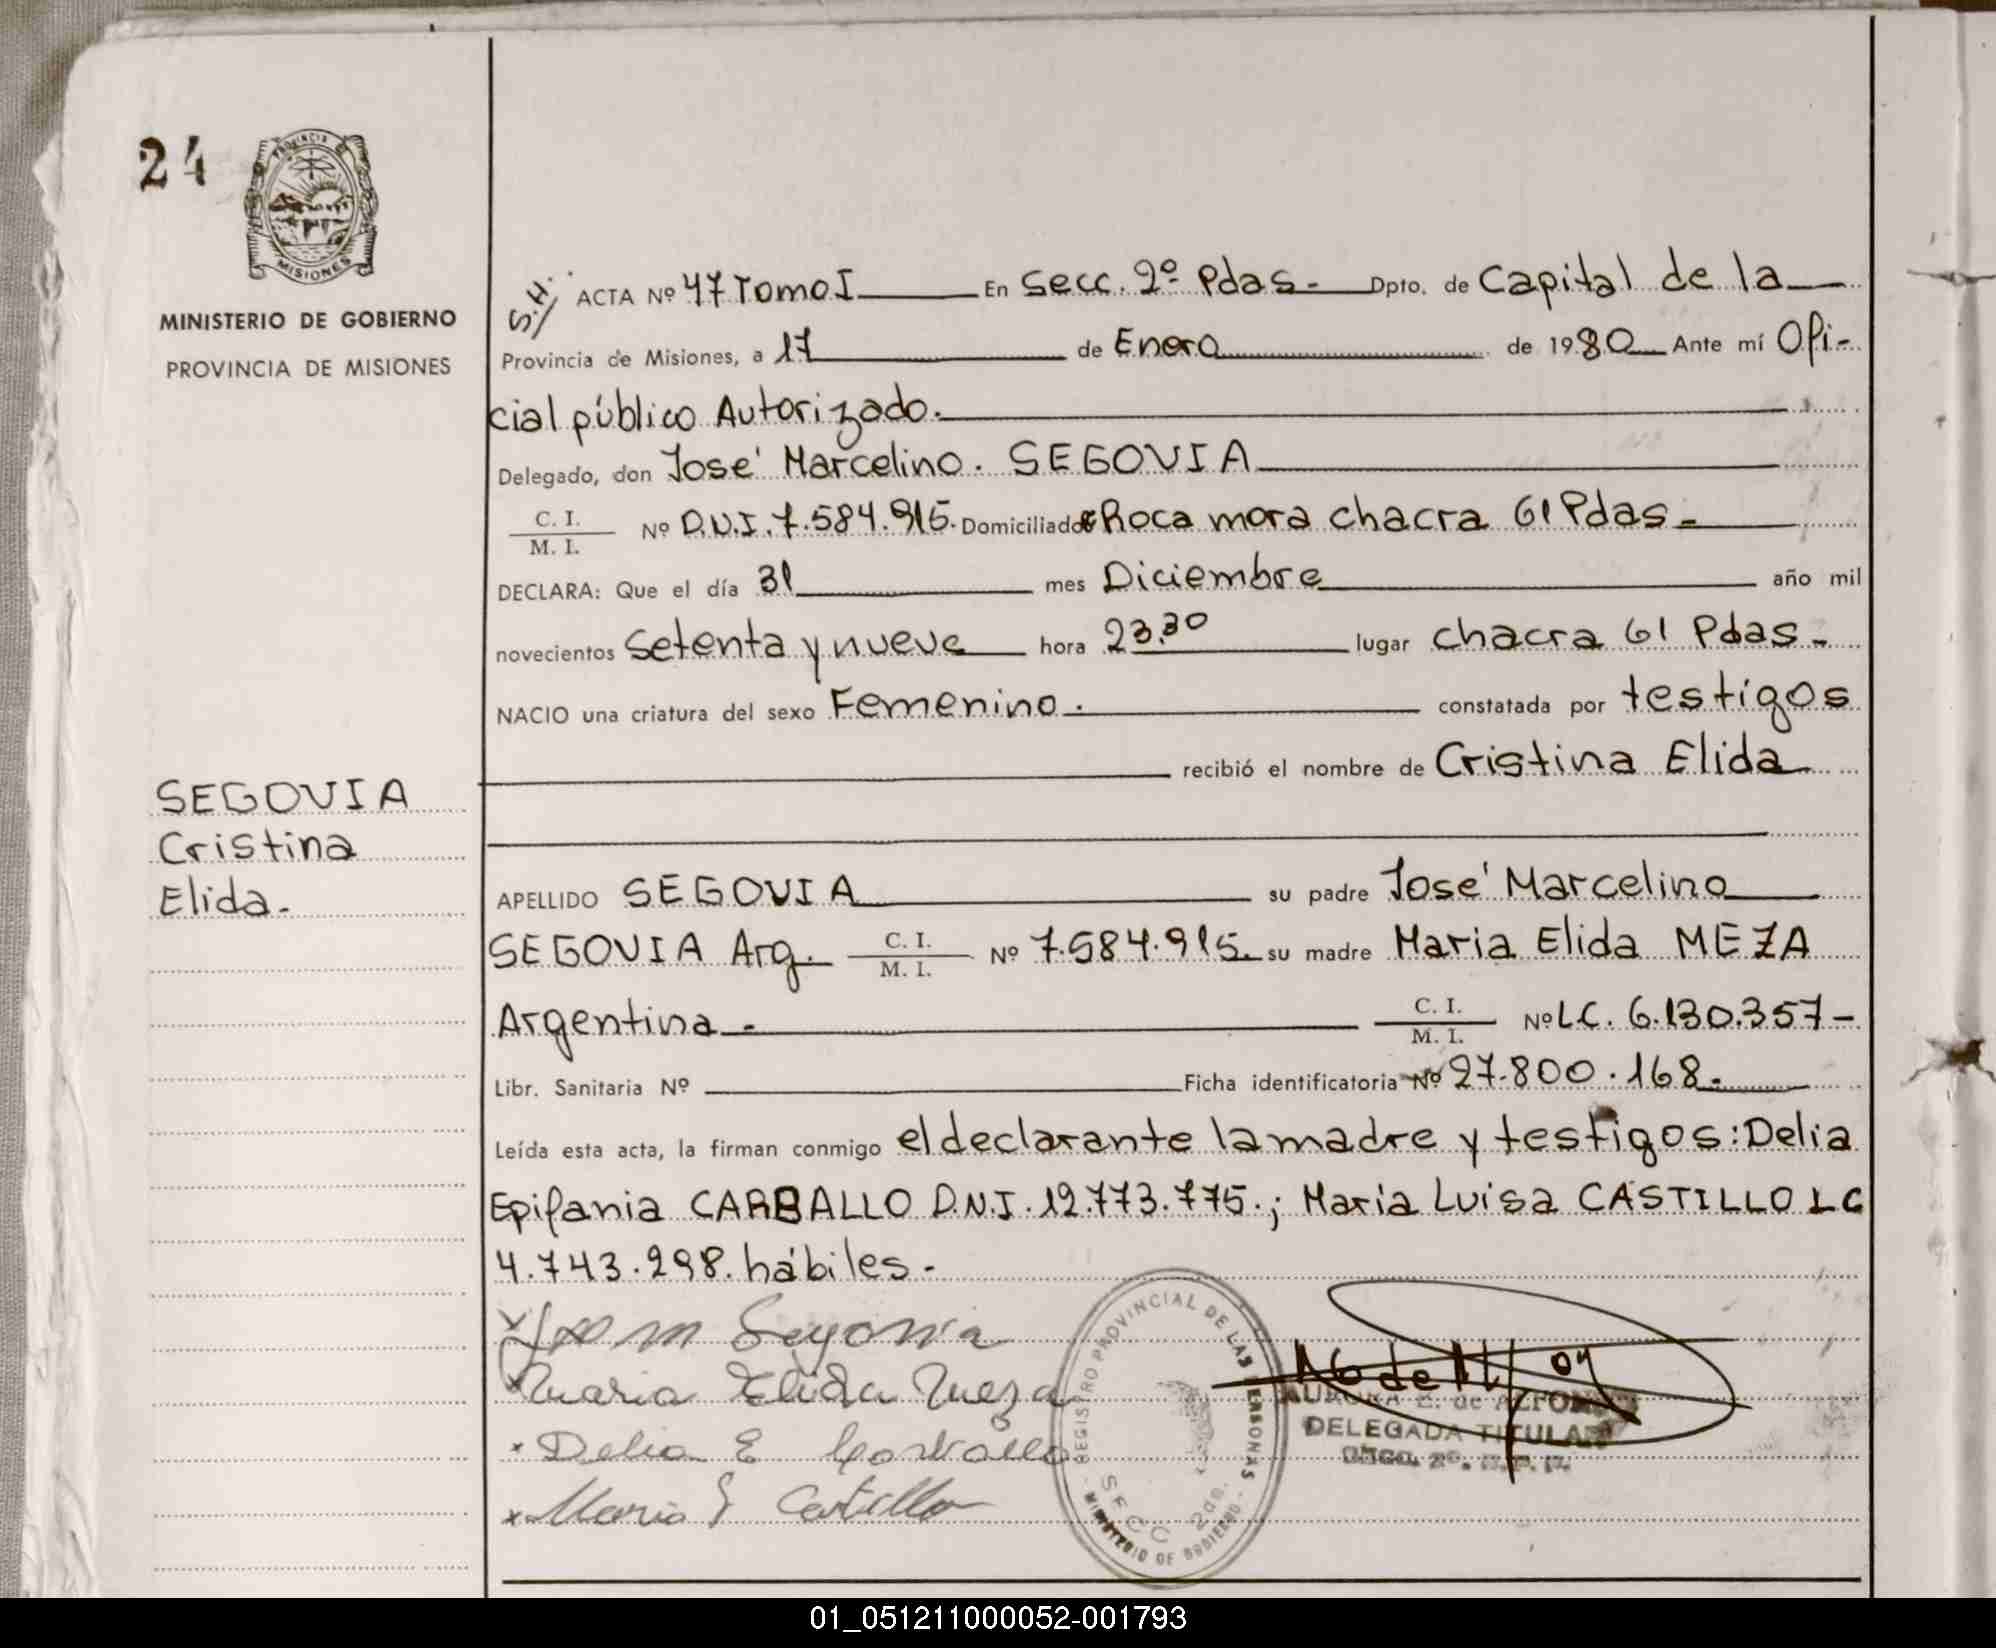 24
PROVINCIA
MISIONES
MINISTERIO DE GOBIERNO
PROVINCIA DE MISIONES
S.H.
ACTA Nº 47 Tomo I En Secc. 2º Pdas.- Dpto. de Capital de la
Provincia de Misiones, a 17 de Enero de 1980 Ante mí Ofi-
cial público Autorizado.
Delegado, don José Marcelino. SEGOVIA
C. I.
M. I.
Nº D.N.I. 7.584.915. Domiciliado Roca mora chacra 61 Pdas-
DECLARA: Que el día 31 mes Diciembre año mil
novecientos Setenta y nueve hora 23.30 lugar chacra 61 Pdas.-
NACIO una criatura del sexo Femenino. constatada por testigos
recibió el nombre de Cristina Elida
SEGOVIA
Cristina
Elida.-
APELLIDO SEGOVIA su padre José Marcelino
SEGOVIA Arg.
C. I.
M. I.
Nº 7.584.915. su madre Maria Elida MEZA
Argentina.-
C. I.
M. I.
Nº LC. 6.130.357-
Libr. Sanitaria Nº Ficha identificatoria Nº 27.800.168.
Leída esta acta, la firman conmigo el declarante la madre y testigos: Delia
Epifania CARBALLO D.N.I. 12.773.775.; Maria Luisa CASTILLO LC
4.743.298. hábiles.-
Segovia
Maria Elida Meza
Delia E Carballo
Maria Castillo
REGISTRO PROVINCIAL DE LAS PERSONAS
SECC 2da.
MINISTERIO DE GOBIERNO
AURORA E. de
DELEGADA TITULAR
01_051211000052-001793